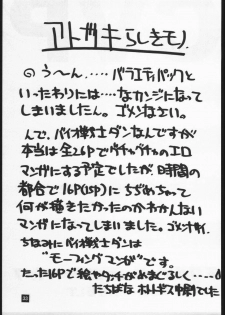 アトガキらしきモノ
のう〜ん‥‥‥バラエティパックと
いったわりには‥‥なカンジになって
しまいましたん。ゴメンなさい。
んで、バイオ戦士ダンなんですが
本当は全26Pでグチャグチャのエロ
マンガにする予定でしたが、日時間の
都合で16P(15P)にちぢめちゃって
何が描きたかったのかわかんない
マンガになってしまいました。ゴメンナサイ。
ちなみにバイオ戦士ダンは
"モーフィングマンガ"です。
たった16Pで絵やタッチがめまぐるしく‥‥
たちばな ホトトギス でした